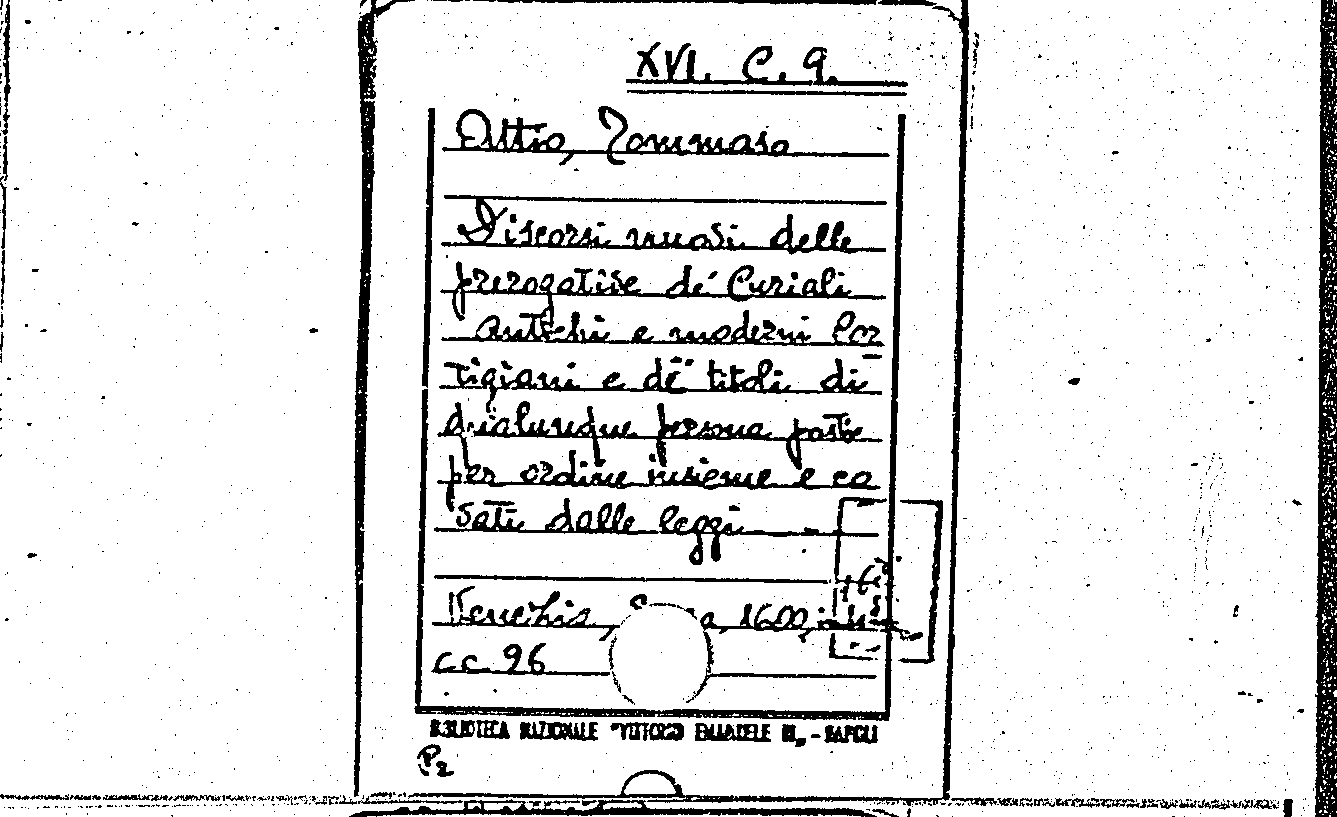 XVI. C. 9.
Attio, Tommaso
Discorsi nuovi delle
prerogative de' Curiali
antichi e moderni Cor
tigiani e de' titoli di
qualunque persona poste
per ordine insieme e ca
vati dalle leggi
Venezia, 1600, in
cc. 96
BIBLIOTECA NAZIONALE "VITTORIO EMANUELE III„ - NAPOLI
P2